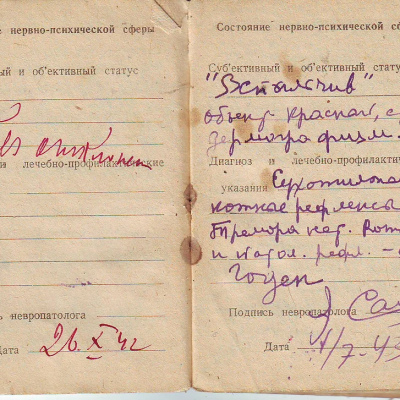 нервно-психической сферы
ый и об'ективный статус
Без отклонен
и лечебно-профилактические
невропатолога
Дата 26.X 42
Состояние нервно-психической сф
Суб'ективный и об'ективный статус
"Вспыльчив"
Объект. Красный, с
дермографизм.
Диагноз и лечебно-профилактич
указания Сухожильн
кожные рефлексы
Тремора нет. Ром
и патол. рефл. -
Годен
Подпись невропатолога
Дата 1/7-43